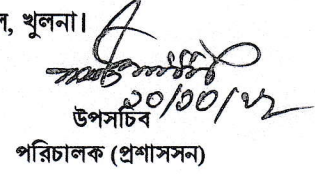 ল, খুলনা।
২০/১০/২২
উপসচিব
পরিচালক (প্রশাসসন)